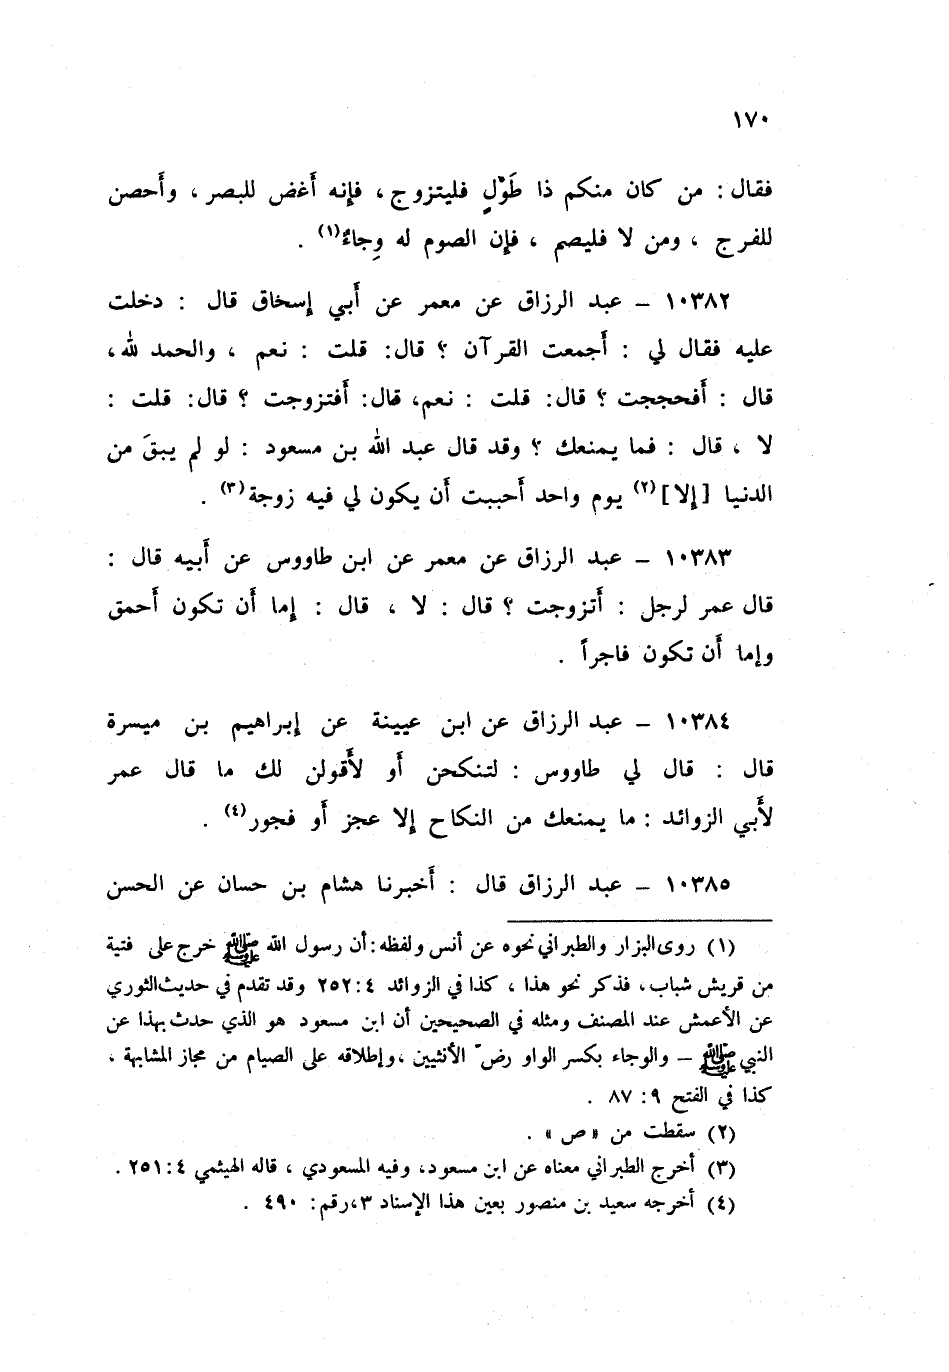 ١٧٠
فقال : من كان منكم ذا طَوْلٍ فليتزوج ، فإنه أَغض للبصر ، وأَحصن
للفرج ، ومن لا فليصم ، فإن الصوم له وِجاءٌ(١) .
١٠٣٨٢ – عبد الرزاق عن معمر عن أَبي إسحاق قال : دخلت
عليه فقال لي : أَجمعت القرآن ؟ قال: قلت : نعم ، والحمد لله ،
قال : أَفحججت ؟ قال: قلت : نعم، قال: أَفتزوجت ؟ قال: قلت :
لا ، قال : فما يمنعك ؟ وقد قال عبد الله بن مسعود : لو لم يبقَ من
الدنيا [إلا](٢) يوم واحد أَحببت أَن يكون لي فيه زوجة(٣) .
١٠٣٨٣ – عبد الرزاق عن معمر عن ابن طاووس عن أَبيه قال :
قال عمر لرجل : أَتزوجت ؟ قال : لا ، قال : إما أَن تكون أَحمق
وإما أَن تكون فاجراً .
١٠٣٨٤ – عبد الرزاق عن ابن عيينة عن إبراهيم بن ميسرة
قال : قال لي طاووس : لتنكحن أَو لأَقولن لك ما قال عمر
لأَبي الزوائد : ما يمنعك من النكاح إلا عجز أَو فجور(٤) .
١٠٣٨٥ – عبد الرزاق قال : أَخبرنا هشام بن حسان عن الحسن
(١) روى البزار والطبراني نحوه عن أنس ولفظه: أن رسول الله ﷺ خرج على فتية
من قريش شباب، فذكر نحو هذا ، كذا في الزوائد ٤ : ٢٥٢ وقد تقدم في حديث الثوري
عن الأعمش عند المصنف ومثله في الصحيحين أن ابن مسعود هو الذي حدث بهذا عن
النبي ﷺ – والوجاء بكسر الواو رضّ الأنثيين ،وإطلاقه على الصيام من مجاز المشابهة ،
كذا في الفتح ٩ : ٨٧ .
(٢) سقطت من « ص » .
(٣) أخرج الطبراني معناه عن ابن مسعود، وفيه المسعودي ، قاله الهيثمي ٤ : ٢٥١ .
(٤) أخرجه سعيد بن منصور بعين هذا الإسناد ٣،رقم : ٤٩٠ .